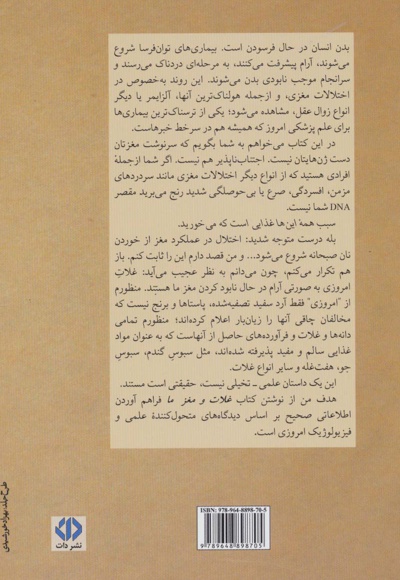 بدن انسان در حال فرسودن است. بیماری‌های توان‌فرسا شروع
می‌شوند، آرام پیشرفت می‌کنند، به مرحله‌ای دردناک می‌رسند و
سرانجام موجب نابودی بدن می‌شوند. این روند به‌خصوص در
اختلالات مغزی، و ازجمله هولناک‌ترین آنها، آلزایمر یا دیگر
انواع زوال عقل، مشاهده می‌شود؛ یکی از ترسناک‌ترین بیماری‌ها
برای علم پزشکی امروز که همیشه هم در سرخط خبرهاست.
در این کتاب می‌خواهم به شما بگویم که سرنوشت مغزتان
دست ژن‌هایتان نیست. اجتناب‌ناپذیر هم نیست. اگر شما ازجملهٔ
افرادی هستید که از انواع دیگر اختلالات مغزی مانند سردردهای
مزمن، افسردگی، صرع یا بی‌حوصلگی شدید رنج می‌برید مقصر
DNA شما نیست.
سبب همهٔ این‌ها غذایی است که می‌خورید.
بله درست متوجه شدید: اختلال در عملکرد مغز از خوردن
نان صبحانه شروع می‌شود... و من قصد دارم این را ثابت کنم. باز
هم تکرار می‌کنم، چون می‌دانم به نظر عجیب می‌آید: غلاتِ
امروزی به صورتی آرام در حال نابود کردن مغز ما هستند. منظورم
از "امروزی" فقط آرد سفید تصفیه‌شده، پاستاها و برنج نیست که
مخالفان چاقی آنها را زیان‌بار اعلام کرده‌اند؛ منظورم تمامی
دانه‌ها و غلات و فرآورده‌های حاصل از آنهاست که به عنوان مواد
غذایی سالم و مفید پذیرفته شده‌اند، مثل سبوس گندم، سبوس
جو، هفت‌غله و سایر انواع غلات.
این یک داستان علمی ـ تخیلی نیست، حقیقتی است مستند.
هدف من از نوشتن کتاب غلات و مغز ما فراهم آوردن
اطلاعاتی صحیح بر اساس دیدگاه‌های متحول‌کنندهٔ علمی و
فیزیولوژیک امروزی است.
طرح جلد: بهزاد خورشیدی
نشر دات
ISBN: 978-964-8898-70-5
9 789648 898705